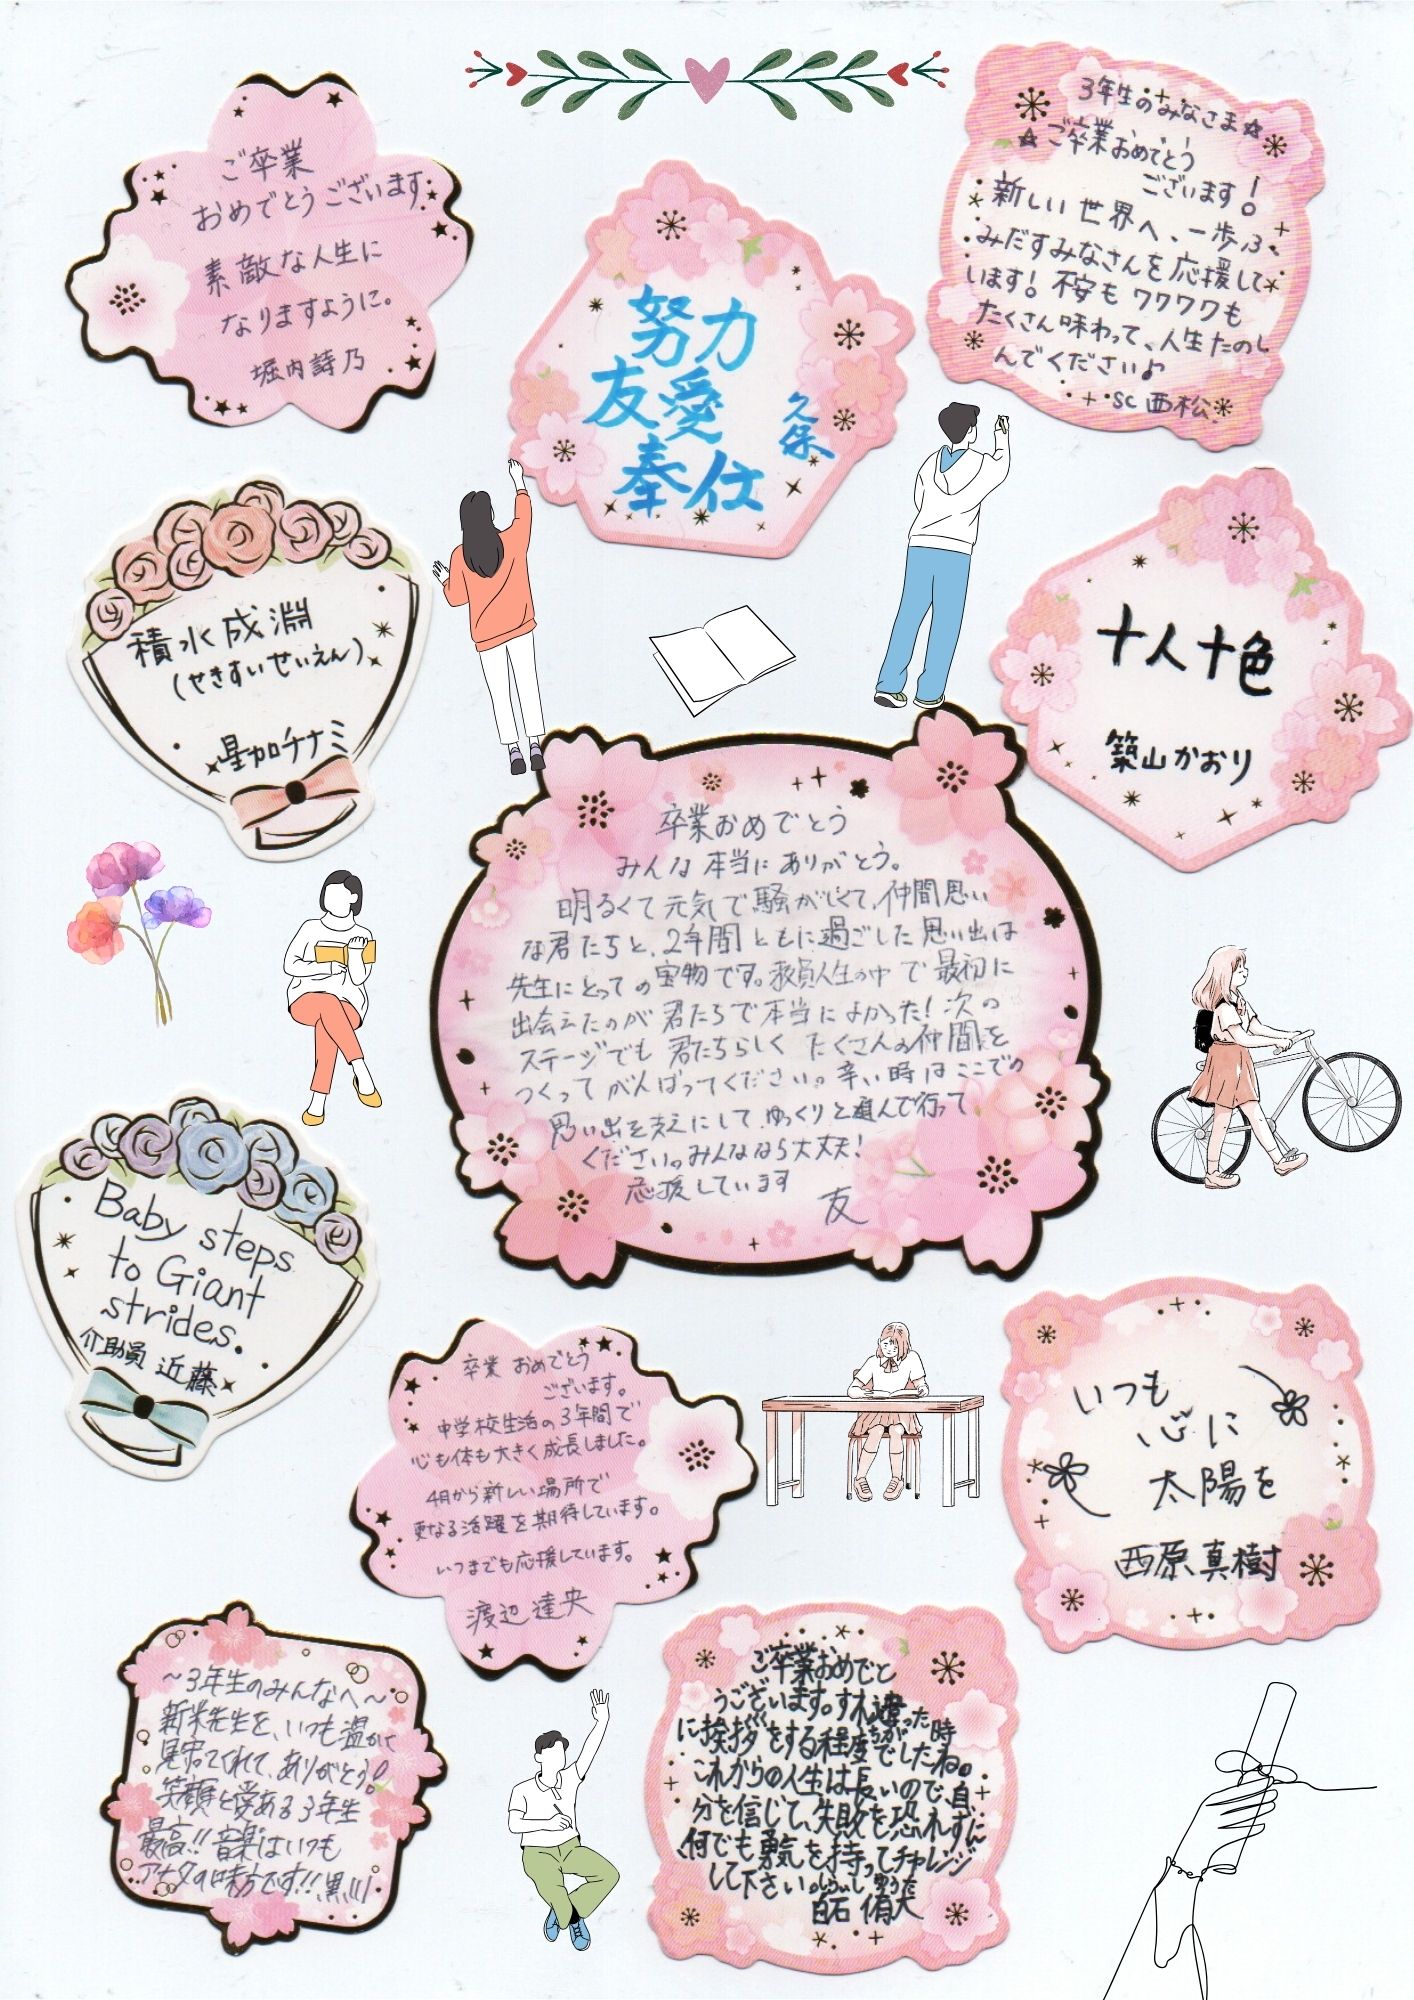 ご卒業
おめでとうございます
素敵な人生に
なりますように。
堀内詩乃
努力
友愛
奉仕
久保
3年生のみなさま☆
☆ご卒業おめでとう
ございます!
新しい世界へ、一歩ふ
みだすみなさんを応援して
います!不安もワクワクも
たくさん味わって、人生たのし
んでください♪
SC 西松
積水成淵
(せきすいせいえん)
星加チナミ
十人十色
築山かおり
卒業おめでとう
みんな本当にありがとう。
明るくて元気で騒がしくて、仲間思い
な君たちと、2年間ともに過ごした思い出は
先生にとっての宝物です。教員人生の中で最初に
出会えたのが君たちで本当によかった!次の
ステージでも君たちらしくたくさんの仲間を
つくってがんばってください。辛い時はここでの
思い出を支えにしてゆっくりと進んで行って
ください。みんななら大丈夫!
応援しています
友
Baby steps
to Giant
strides.
介助員 近藤
卒業おめでとう
ございます。
中学校生活の3年間で
心も体も大きく成長しました。
4月から新しい場所で
更なる活躍を期待しています。
いつまでも応援しています。
渡辺達央
いつも
心に
太陽を
西原真樹
~3年生のみんなへ~
新米先生を、いつも温かく
見守ってくれて、ありがとう!
笑顔と愛ある3年生
最高!!音楽はいつも
アナタの味方です!!黒川
ご卒業おめでと
うございます。すれ違った時
に挨拶をする程度でしたね。
これからの人生は長いので、自
分を信じて、失敗を恐れずに
何でも勇気を持ってチャレンジ
して下さい。
白石侑大